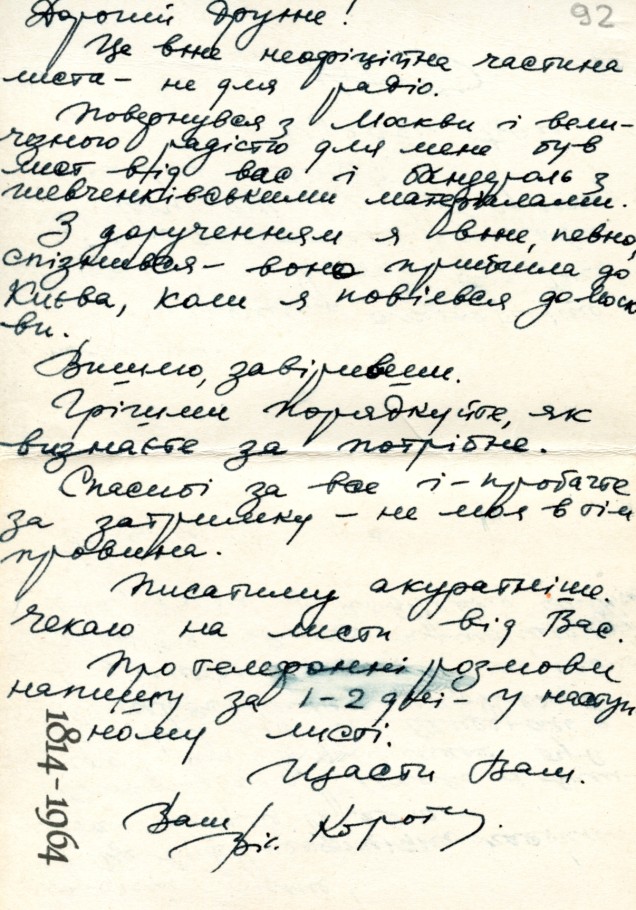 92
Дорогий друже!
Це вже неофіційна частина
листа – не для радіо.
Повернувся з Москви і вели-
чезною радістю для мене був
лист від вас і бандероль з
шевченківськими матеріалами.
З дорученням я вже, певно,
спізнився – воно прийшло до
Києва, коли я повіявся до Моск-
ви.
Вишлю, завіривши.
Грішми порядкуйте, як
визнаєте за потрібне.
Спасибі за все і – пробачте
за затримку – не моя в тім
провина.
Писатиму акуратніше.
Чекаю на листи від Вас.
Про телефонні розмови
напишу за 1–2 дні – у наступ
ному листі.
Щасти Вам.
Ваш
Віт. Коротич.
1814-1964